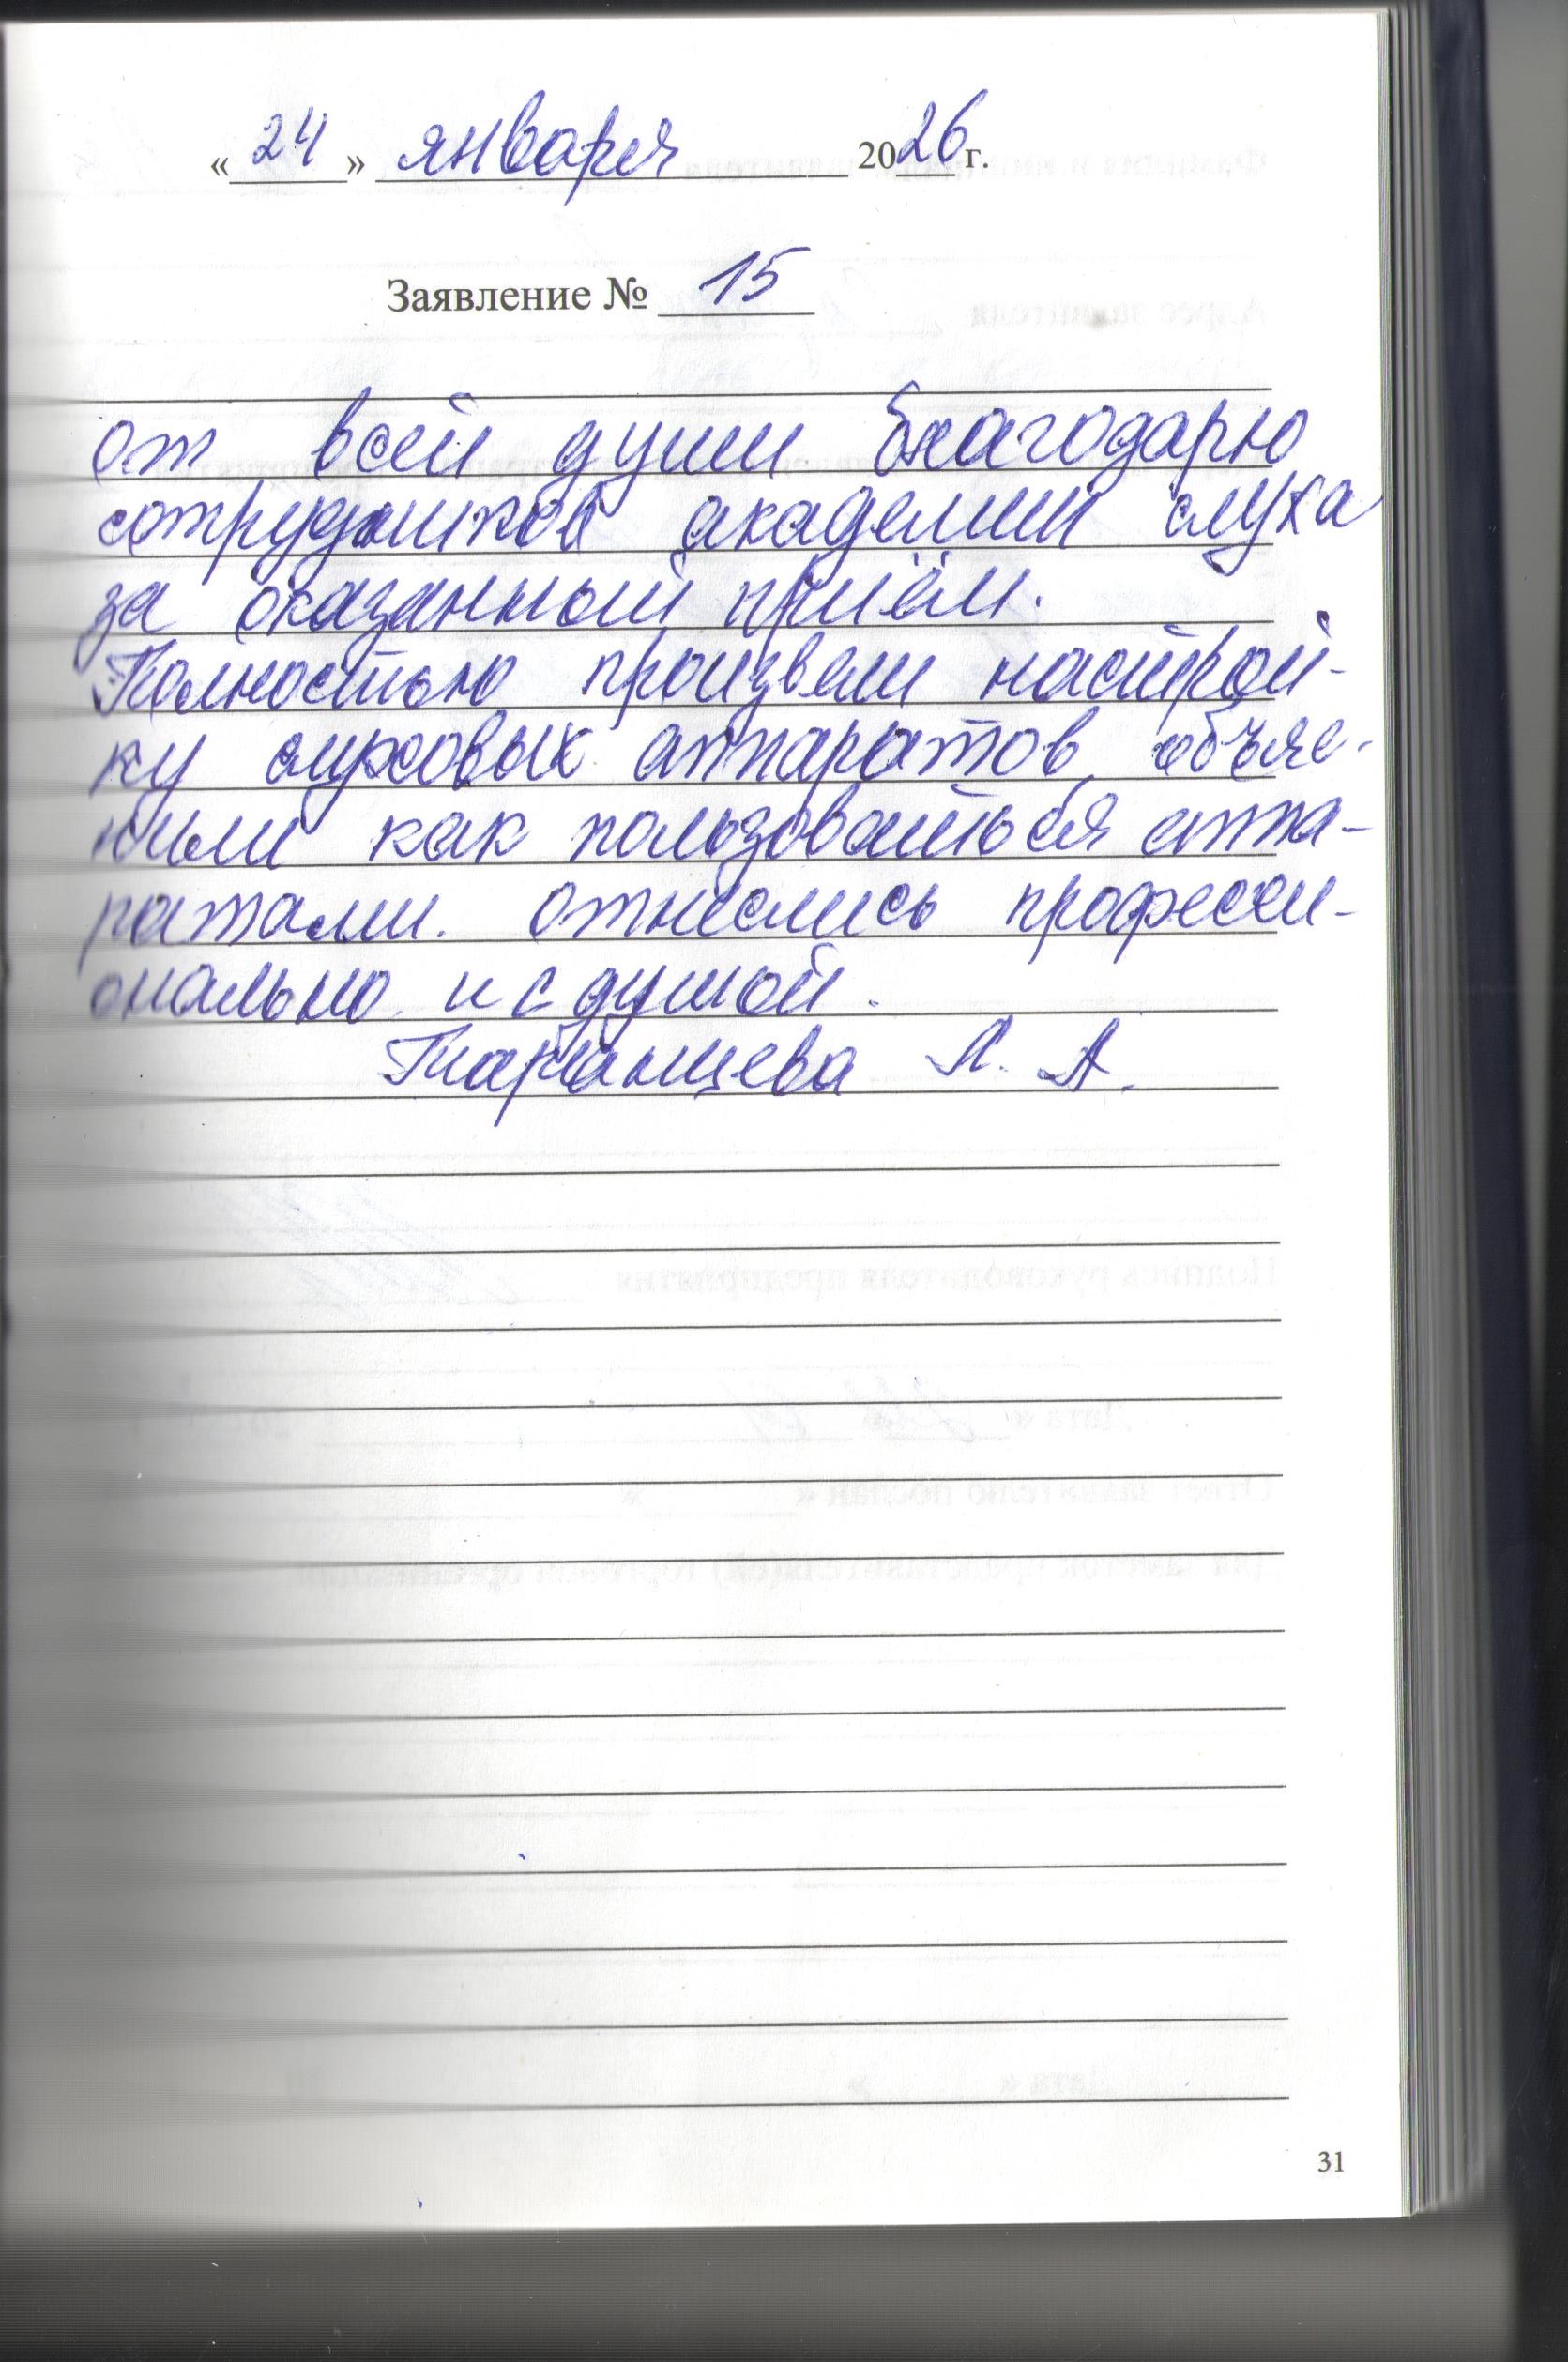 «24» января 2026 г.
Заявление № 15
от всей души благодарю
сотрудников академии слуха
за оказанный приём.
Полностью произвели настрой-
ку слуховых аппаратов, объяс-
нили как пользоваться аппа-
ратами. отнеслись професси-
онально и с душой.
Таранцева Л. А.
31